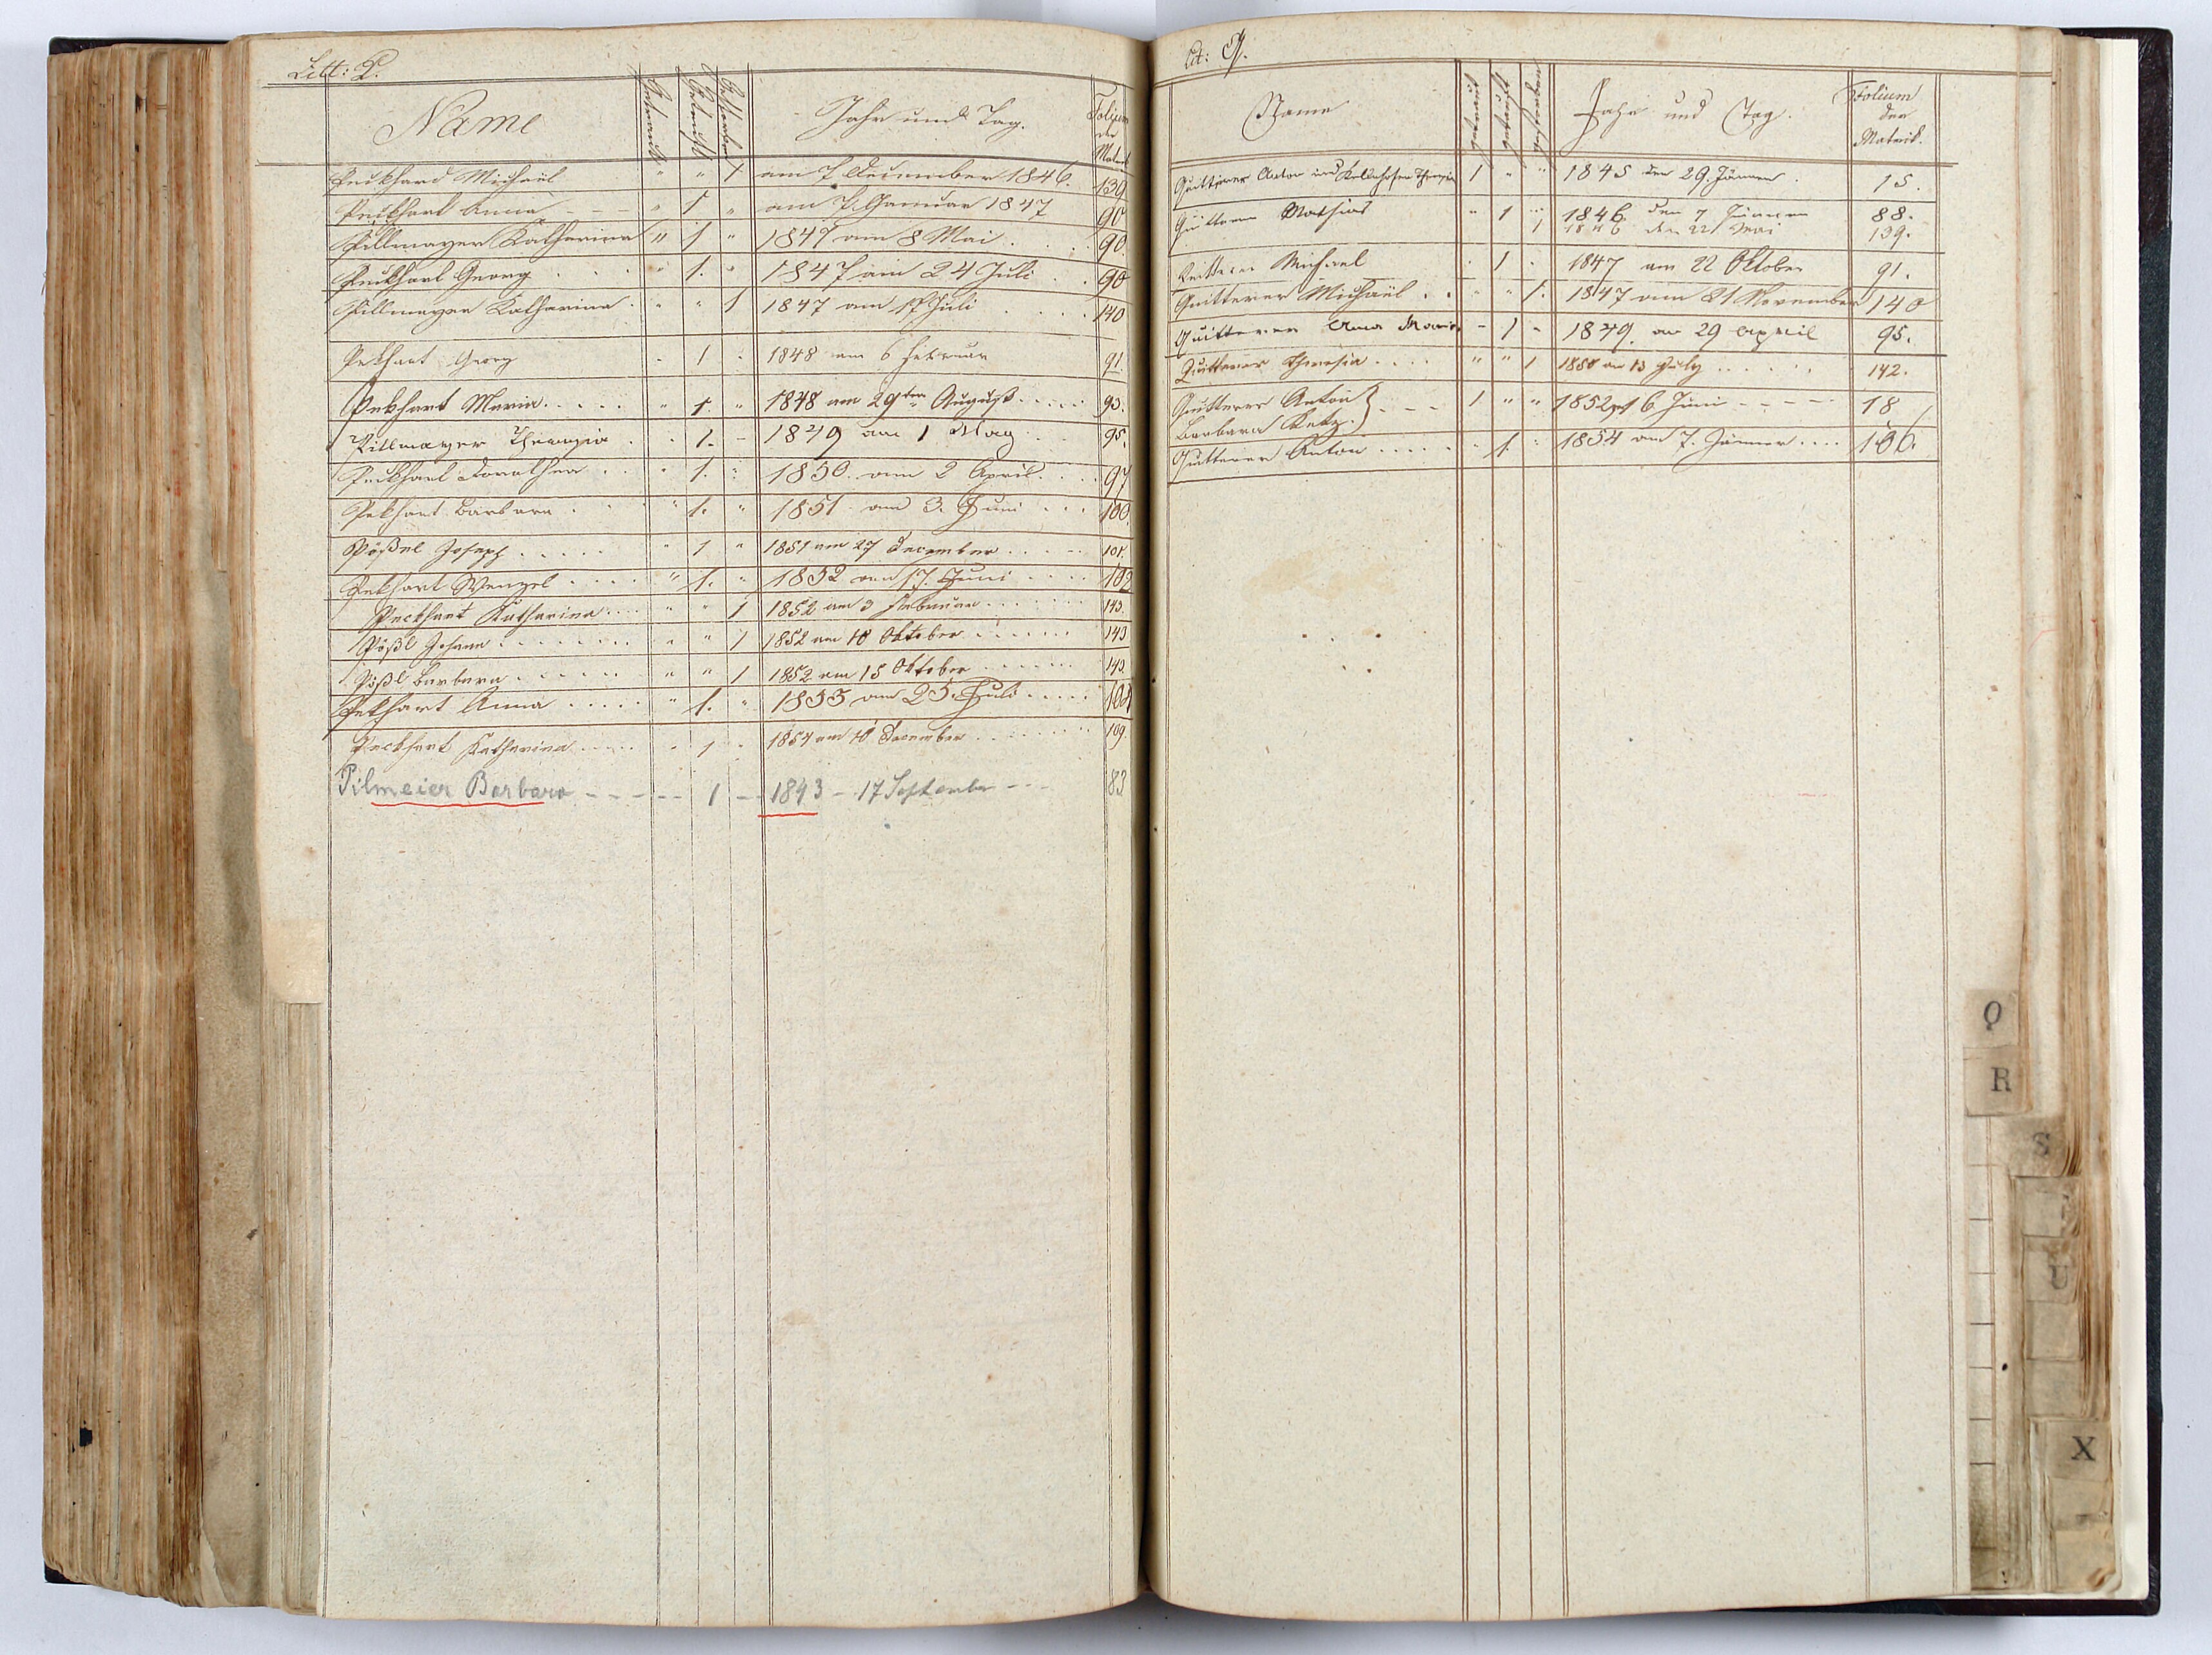 Litt: P.
Name Getraut Getauft Gestorben Jahr und Tag. Folium der Matrik
Peckhard Michael " " 1 am 7 December 1846. 139
Peckhart Anna " 1 " am 7. Januar 1847 90
Pillmayer Katharina " 1 " 1847 am 8 Mai. 90.
Peckhart Georg " 1. " 1847 am 24 Juli 90
Pillmayer Katharina " " 1 1847 am 17 Juli 140
Pekhart Georg " 1 " 1848 am 6 Februar 91.
Pekhart Maria " 1. " 1848 am 29ten August 93.
Pillmayer Theresia " 1. - 1849 am 1 May 95.
Peckhart Dorothea " 1. " 1850. am 2 April. 97
Pekhart Barbara " 1. " 1851 am 3. Juni 100.
Pößel Joseph " 1 " 1851 am 27 December 101.
Pekhart Wenzel " 1. " 1852 am 17. Juni 102
Peckhart Katharina " " 1 1852 am 3 Februar 143.
Pößl Johann " " 1 1852 am 10 Oktober 143
Pößl Barbara " " 1 1852 am 15 Oktober 143.
Pekhart Anna " 1. " 1853 am 25. Juli 104
Peckhart Katharina " 1 " 1854 am 10 December 109.
Pilmeier Barbara 1 1843 - 17 September 83
Lit: Q.
Name getraut getauft gestorben Jahr und Tag. Folium der Matrik.
Quitterer Anton und Theresia 1 " " 1845 den 29. Jänner. 15.
Quitterer Mathias " 1 " 1846 den 7 Jänner 88.
1 1846 den 22 Mai 139.
Quitterer Michael " 1 " 1847 am 22 Oktober 91.
Quitterer Michael " " 1. 1847 am 21 November 140
Quitterer Anna Maria - 1 - 1849. am 29 April 95.
Quitterer Theresia " " 1 1850 am 13 July 142.
Quitterer Anton } 1 " " 1852 16 Juni 18
Barbara
Quitterer Anton " 1. " 1854 am 7. Jänner 106.
Q
R
S
U
X